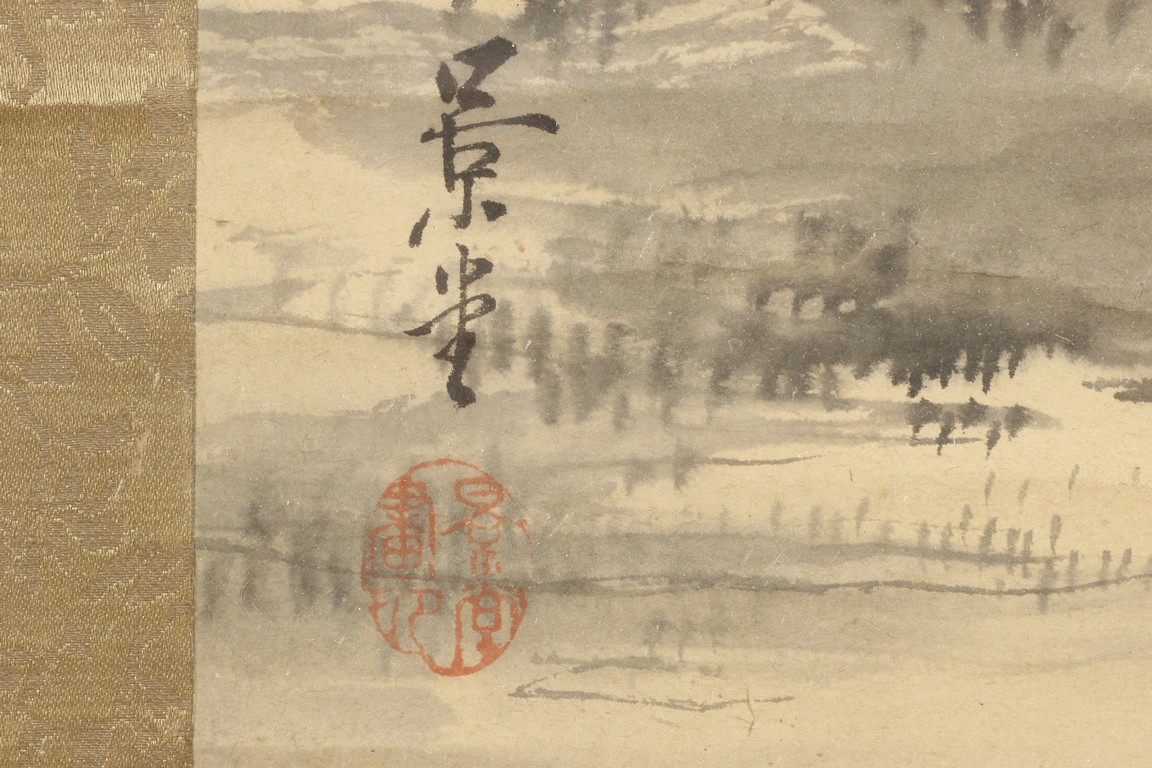 景堂
景堂
畫印